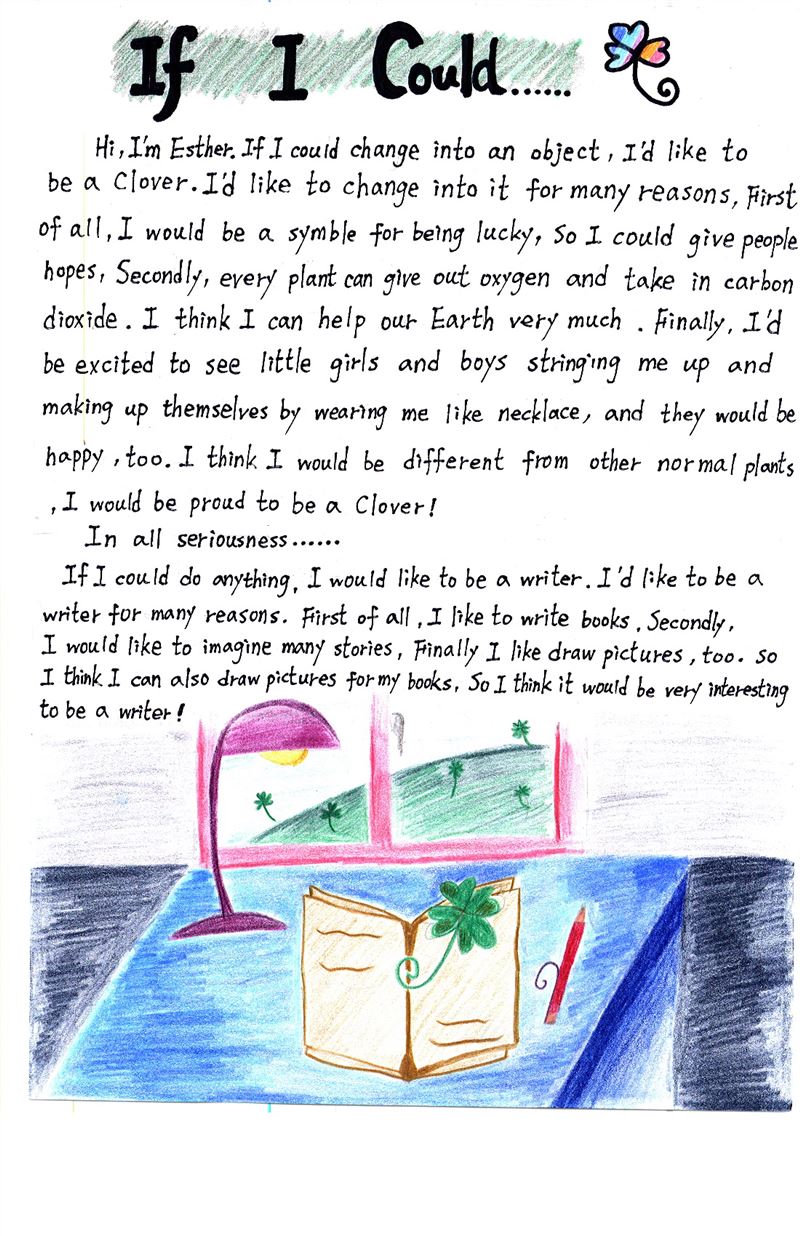 If I Could......
Hi, I'm Esther. If I could change into an object, I'd like to
be a Clover. I'd like to change into it for many reasons, First
of all, I would be a symble for being lucky, So I could give people
hopes, Secondly, every plant can give out oxygen and take in carbon
dioxide. I think I can help our Earth very much. Finally, I'd
be excited to see little girls and boys stringing me up and
making up themselves by wearing me like necklace, and they would be
happy, too. I think I would be different from other normal plants
, I would be proud to be a Clover!
In all seriousness......
If I could do anything, I would like to be a writer. I'd like to be a
writer for many reasons. First of all, I like to write books. Secondly,
I would like to imagine many stories, Finally I like draw pictures, too. So
I think I can also draw pictures for my books, So I think it would be very interesting
to be a writer!